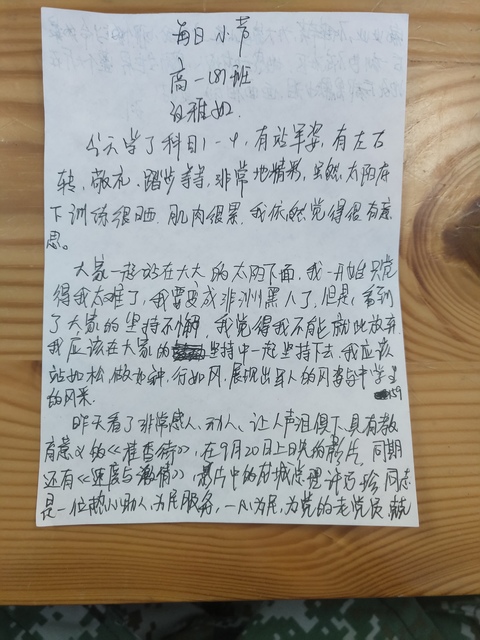 每日小节
高一(8)班
今天学了科目1一4,有站军姿,有左右
转、敬礼、踏步等等,非常地精彩,虽然太阳在
下训练很晒,肌肉很累,我依然觉得很有意
思。
大家一起站在大大的太阳下面,我一开始只觉
得我太难了,我要变成非洲黑人了,但是,看到
了大家的坚持不懈,我觉得我不能就此放弃
我应该在大家的坚持中一起坚持下去,我应该
站如松,做如钟,行如风,展现出军人的风姿与中学生
的风采。
159
昨天看了非常感人、动人、让人声泪俱下、具有教
育意义的《准备街》,在9月20日上映的影片,同期
还有《速度与激情》,影片中的总理许巧珍同志
是一位热心助人、为民服务,一心为民,为党的老党员,就